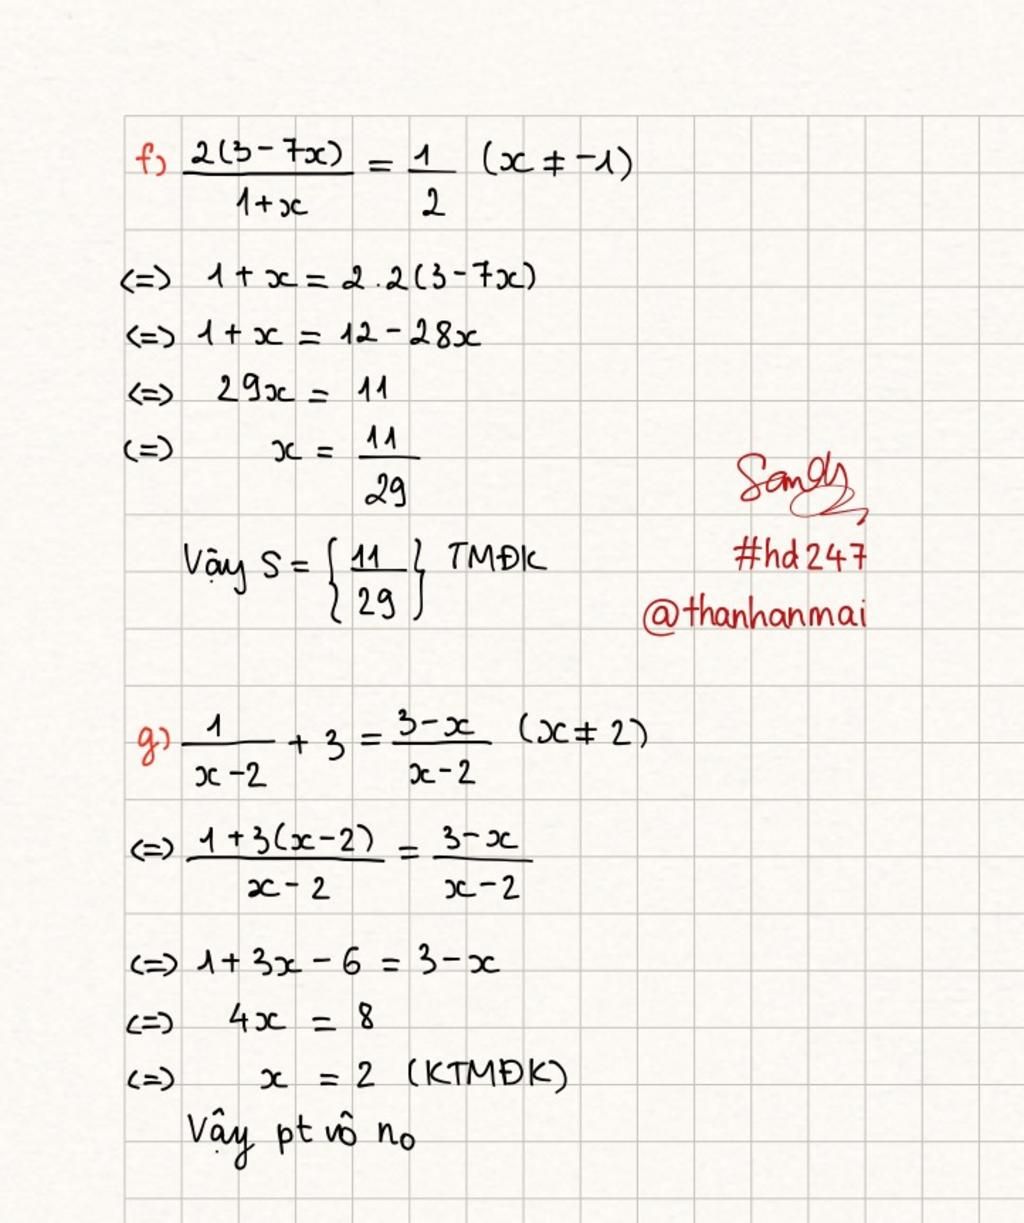 f) 2(3-7x)/1+x = 1/2 (x ≠ -1)
<=> 1+x = 2.2(3-7x)
<=> 1+x = 12-28x
<=> 29x = 11
<=> x = 11/29
Vậy S = {11/29} TMĐK
Sandy
#hd247
@thanhanmai
g) 1/x-2 + 3 = 3-x/x-2 (x ≠ 2)
<=> 1+3(x-2)/x-2 = 3-x/x-2
<=> 1+3x-6 = 3-x
<=> 4x = 8
<=> x = 2 (KTMĐK)
Vậy pt vô no